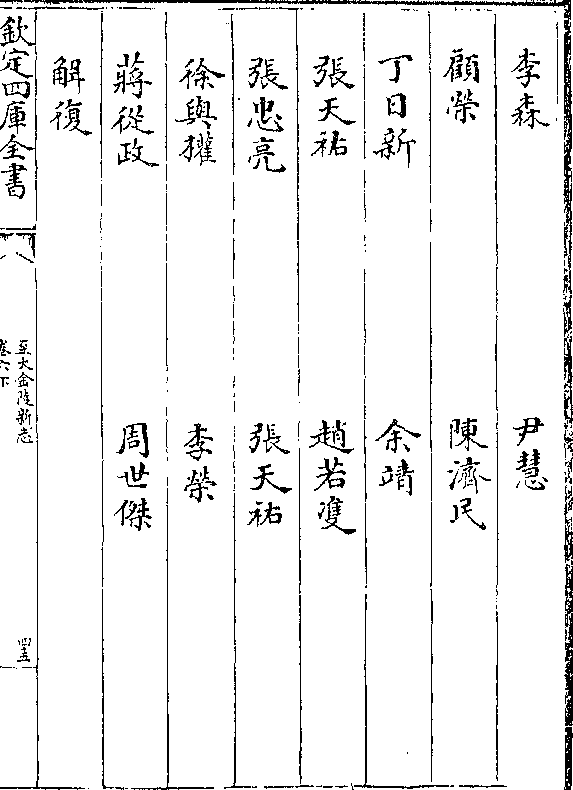 李森　尹慧
顧榮　陳濟民
丁日新　余靖
張天祐　趙若
張忠亮　張天祐
徐興㩴　李榮
蔣從政　周世傑
解復
欽定四庫全書
至大金陵新志
卷六下
四五